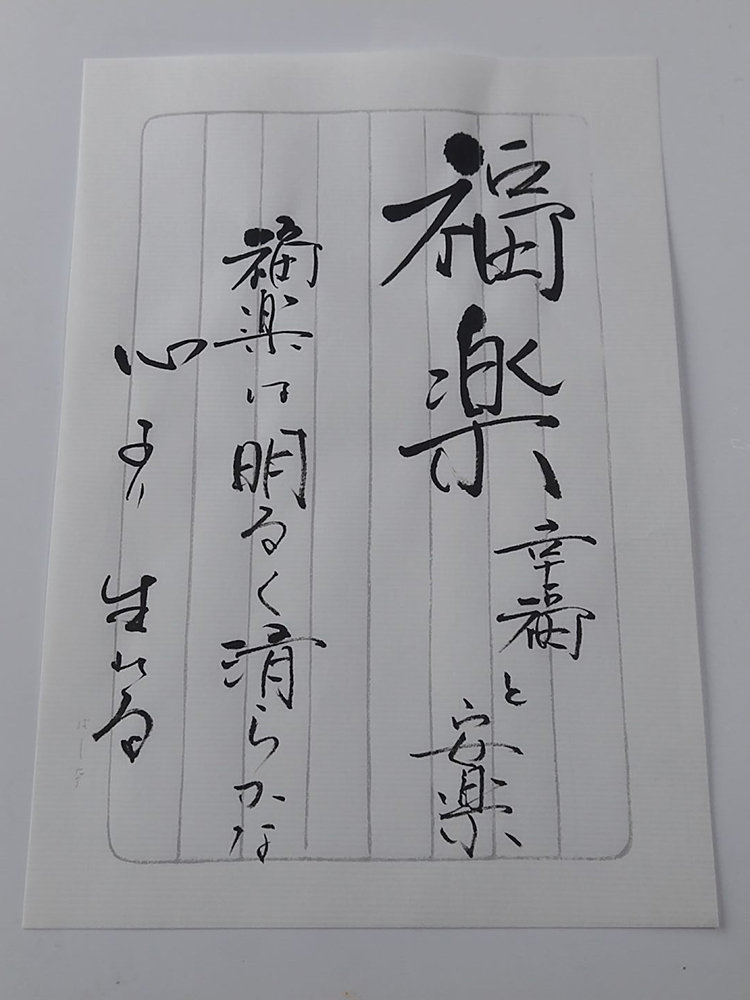 福楽
幸福と安楽
福楽は明るく清らかな
心より生れる